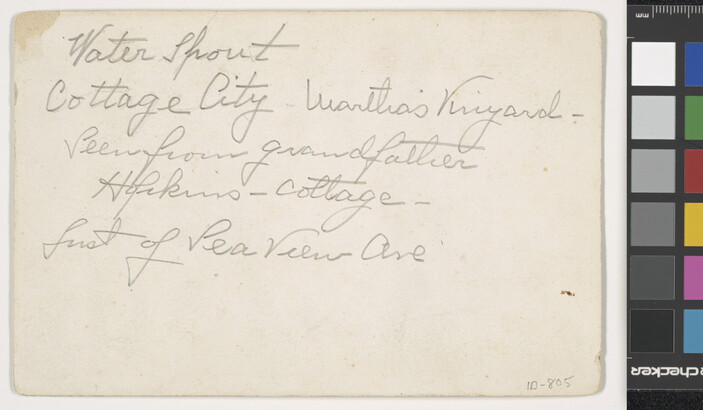 Water Spout
Cottage City - Martha's Vinyard -
Seen from grandfather
Hopkins - Cottage -
of Sea View Ave
ID-805
mm
checker